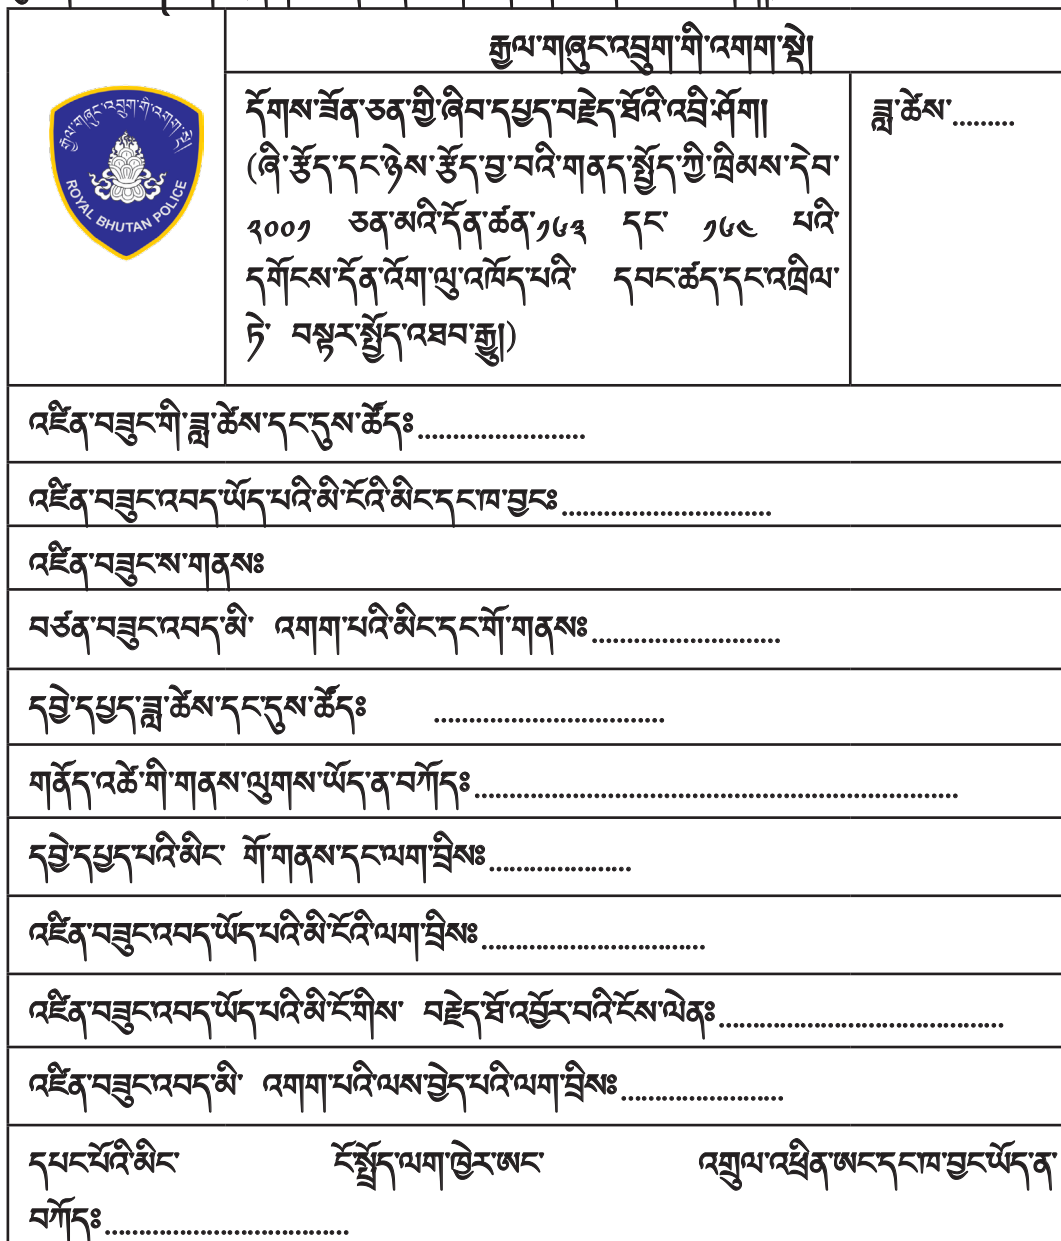 རྒྱལ་གཞུང་འབྲུག་གི་འགག་སྡེ།
རྒྱལ་གཞུང་འབྲུག་གི་འགག་སྡེ།
ROYAL BHUTAN POLICE
དོགས་ཟོན་ཅན་གྱི་ཞིབ་དཔྱད་བརྗེད་ཐོའི་འབྲི་ཤོག།
(ཞི་རྩོད་དང་ཉེས་རྩོད་བྱ་བའི་གནད་སྤྱོད་ཀྱི་ཁྲིམས་དེབ་
༢༠༠༡ ཅན་མའི་དོན་ཚན་༡༦༣ དང་ ༡༦༤ པའི་
དགོངས་དོན་འོག་ལུ་འཁོད་པའི་ དབང་ཚད་དང་འཁྲིལ་
ཏེ་ བསྟར་སྤྱོད་འཐབ་རྒྱུ།)
ཟླ་ཚེས་.........
འཛིན་བཟུང་གི་ཟླ་ཚེས་དང་དུས་ཚོདཿ........................
འཛིན་བཟུང་འབད་ཡོད་པའི་མི་ངོའི་མིང་དང་ཁ་བྱངཿ..............................
འཛིན་བཟུང་ས་གནསཿ
བཙན་བཟུང་འབད་མི་ འགག་པའི་མིང་དང་གོ་གནསཿ...........................
དབྱེ་དཔྱད་ཟླ་ཚེས་དང་དུས་ཚོདཿ .................................
གནོད་འཚེ་གི་གནས་ལུགས་ཡོད་ན་བཀོདཿ.....................................................................
དབྱེ་དཔྱད་པའི་མིང་ གོ་གནས་དང་ལག་བྲིསཿ.....................
འཛིན་བཟུང་འབད་ཡོད་པའི་མི་ངོའི་ལག་བྲིསཿ.................................
འཛིན་བཟུང་འབད་ཡོད་པའི་མི་ངོ་གིས་ བརྗེད་ཐོ་འབྱོར་བའི་ངོས་ལེནཿ..........................................
འཛིན་བཟུང་འབད་མི་ འགག་པའི་ལས་བྱེད་པའི་ལག་བྲིསཿ........................
དཔང་པོའི་མིང་ ངོ་སྤྲོད་ལག་ཁྱེར་ཨང་ འགྲུལ་འཕྲིན་ཨང་དང་ཁ་བྱང་ཡོད་ན་
བཀོདཿ....................................